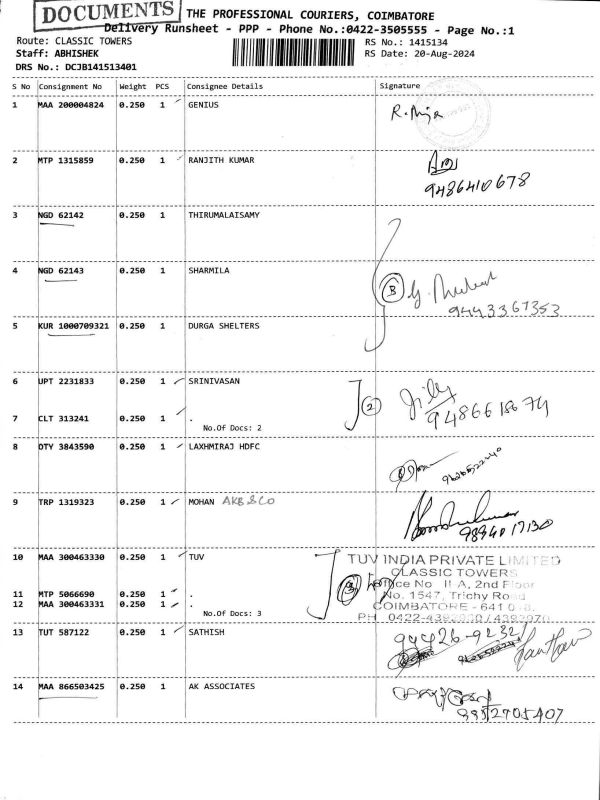 DOCUMENTS
THE PROFESSIONAL COURIERS, COIMBATORE
Delivery Runsheet - PPP - Phone No.:0422-3505555 - Page No.:1
Route: CLASSIC TOWERS RS No.: 1415134
Staff: ABHISHEK RS Date: 20-Aug-2024
DRS No.: DCJB141513401
S No Consignment No Weight PCS Consignee Details Signature
1 MAA 200004824 0.250 1 GENIUS
2 MTP 1315859 0.250 1 RANJITH KUMAR
9486410678
3 NGD 62142 0.250 1 THIRUMALAISAMY
4 NGD 62143 0.250 1 SHARMILA
3
9443367353
5 KUR 1000709321 0.250 1 DURGA SHELTERS
6 UPT 2231833 0.250 1 SRINIVASAN
2
7 CLT 313241 0.250 1 .
No.Of Docs: 2
8 OTY 3843590 0.250 1 LAXHMIRAJ HDFC
9 TRP 1319323 0.250 1 MOHAN AKB & CO
10 MAA 300463330 0.250 1 TUV
TUV INDIA PRIVATE LIMITED
CLASSIC TOWERS
3
Office No II-A, 2nd Floor
11 MTP 5066690 0.250 1 .
No. 1547, Trichy Road
12 MAA 300463331 0.250 1 .
COIMBATORE - 641 0
No.Of Docs: 3
PH 0422-
13 TUT 587122 0.250 1 SATHISH
14 MAA 866503425 0.250 1 AK ASSOCIATES
9952705407